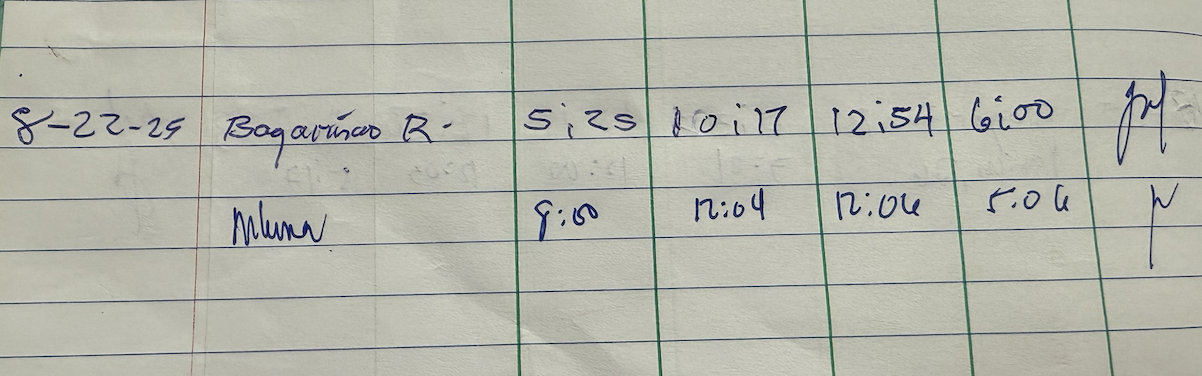 8-22-25 Bagarinao R. 5:25 10:17 12:54 6:00
8:00 12:04 12:06 5:06